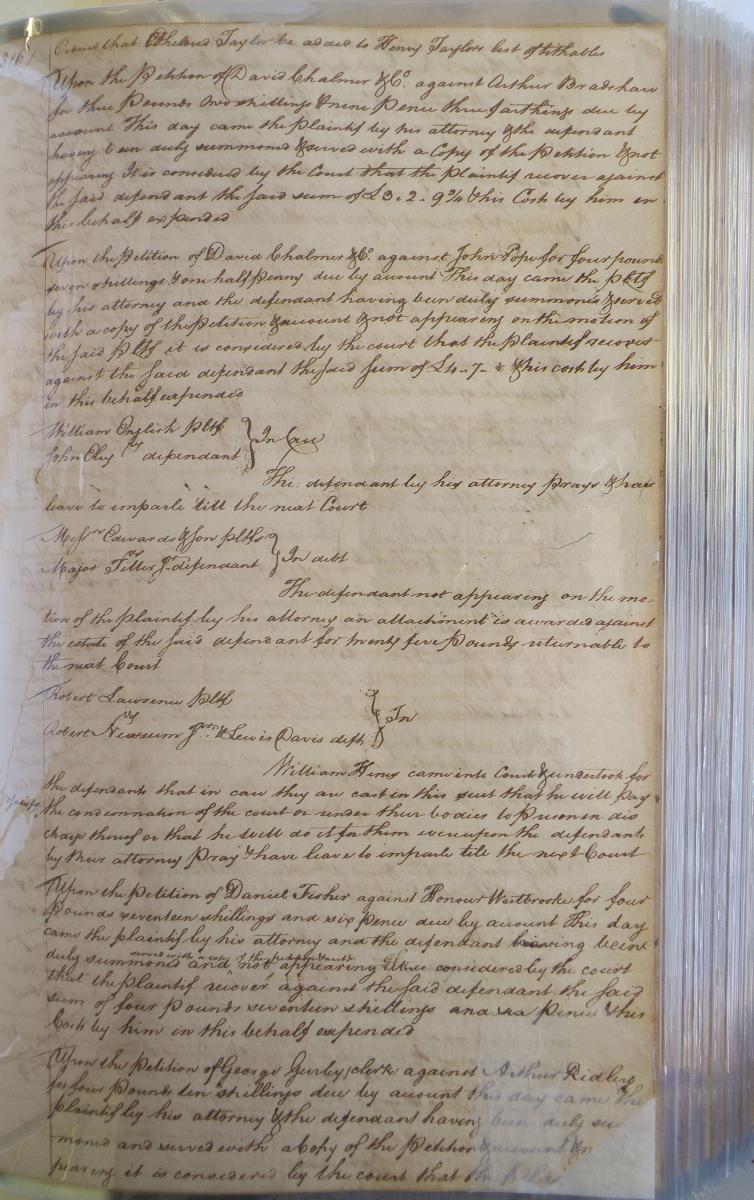 316
Ordered that Etheldred Taylor be added to Henry Taylors list of tithables
Upon the Petition of David Chalmer & Co. against Arthur Bradshaw
for three Pounds two shillings & nine Pence three farthings due by
account This day came the plaintif by his attorney & the defendant
having been duly summoned & served with a Copy of the Petition & not
appearing It is considered by the Court that the plaintif recover against
the said defendant the said sum of £3-2-9¾ & his Costs by him in
this behalf expended
Upon the Petition of David Chalmer & Co. against John Pope for four pounds
seven shillings & one half Penny due by account This day came the pltf
by his attorney and the defendant having been duly summoned & served
with a copy of the petition & account & not appearing on the motion of
the said Pltf it is considered by the court that the plaintif recover
against the said defendant the said sum of £4-7-½ & his costs by him
in this behalf expended
William English Pltf
vs
John Eley defendant } In Case
The defendant by his attorney prays & has
leave to imparle till the next Court
Messrs Edwards & Son pltfs
vs
Major Tiller Jr defendant } In debt
The defendant not appearing on the mo-
tion of the plaintif by his attorney an attachment is awarded against
the estate of the said defendant for twenty five Pounds returnable to
the next Court
Robert Lawrence pltf
vs
Robert Newsum Junr. & Lewis Davis defts } In
William Hines came into Court & undertook for
the defendants that in case they are cast in this suit that he will pay
the condemnation of the court or render their bodies to prison in dis
charge thereof or that he will do it for them whereupon the defendants
by their attorney pray & have leave to imparle till the next Court
Upon the petition of Daniel Fisher against Honour Westbrooke for four
Pounds seventeen shillings and six pence due by account This day
came the plaintif by his attorney and the defendant having been
served with a copy of the petition & acct.
duly summoned and not appearing It is considered by the court
that the plaintif recover against the said defendant the said
sum of four Pounds seventeen shillings and six pence & his
Costs by him in this behalf expended
Upon the Petition of George Gurley clerk against Arthur Ridley
for four Pounds ten shillings due by account this day came the
plaintif by his attorney & the defendant having been duly su
moned and served with a Copy of the Petition & account & n
pearing it is considered by the court that the